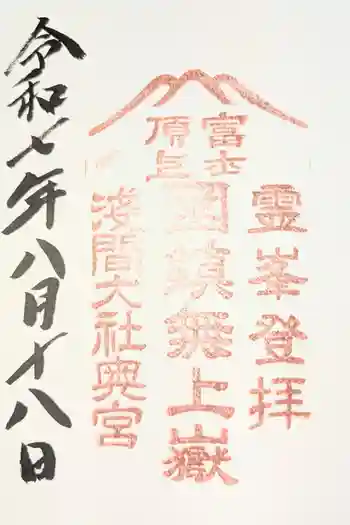 霊峯登拝
富士
頂上
國鎮無上嶽
浅間大社奥宮
令和七年八月十八日